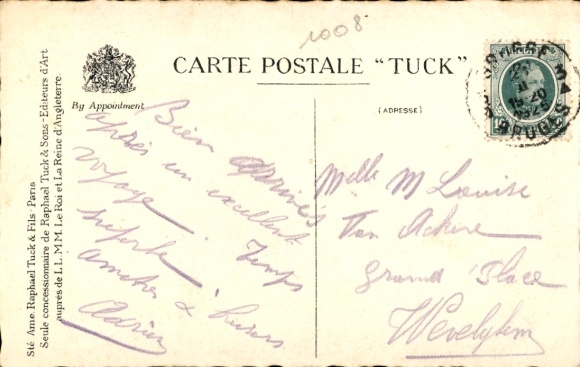 1008
CARTE POSTALE "TUCK"
By Appointment
(ADRESSE)
Sté Ame. Raphael Tuck & Fils - Paris
Seule concessionnaire de Raphael Tuck & Sons - Editeurs d'Art
auprès de L.L. M.M. Le Roi et La Reine d'Angleterre.
BRUGGE
BRUGES
Bien arrivés
après un excellent
voyage. Temps
superbe.
amitiés &
Adrien
Melle M Louise
Van Ackere
Grand'Place
Wevelghem